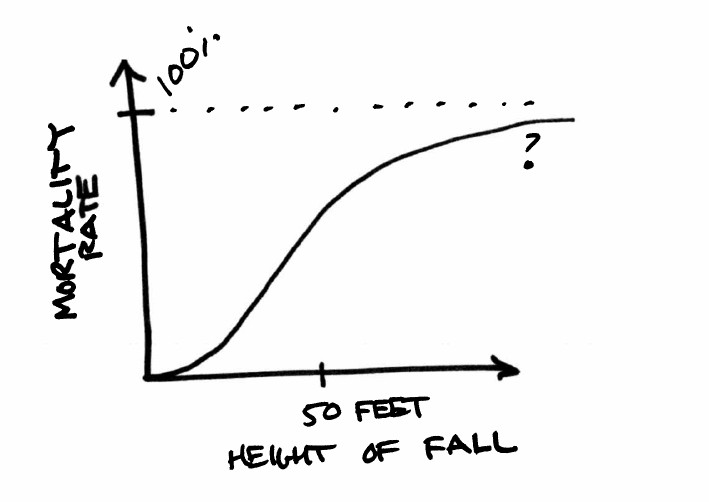 100%
MORTALITY
RATE
?
50 FEET
HEIGHT OF FALL